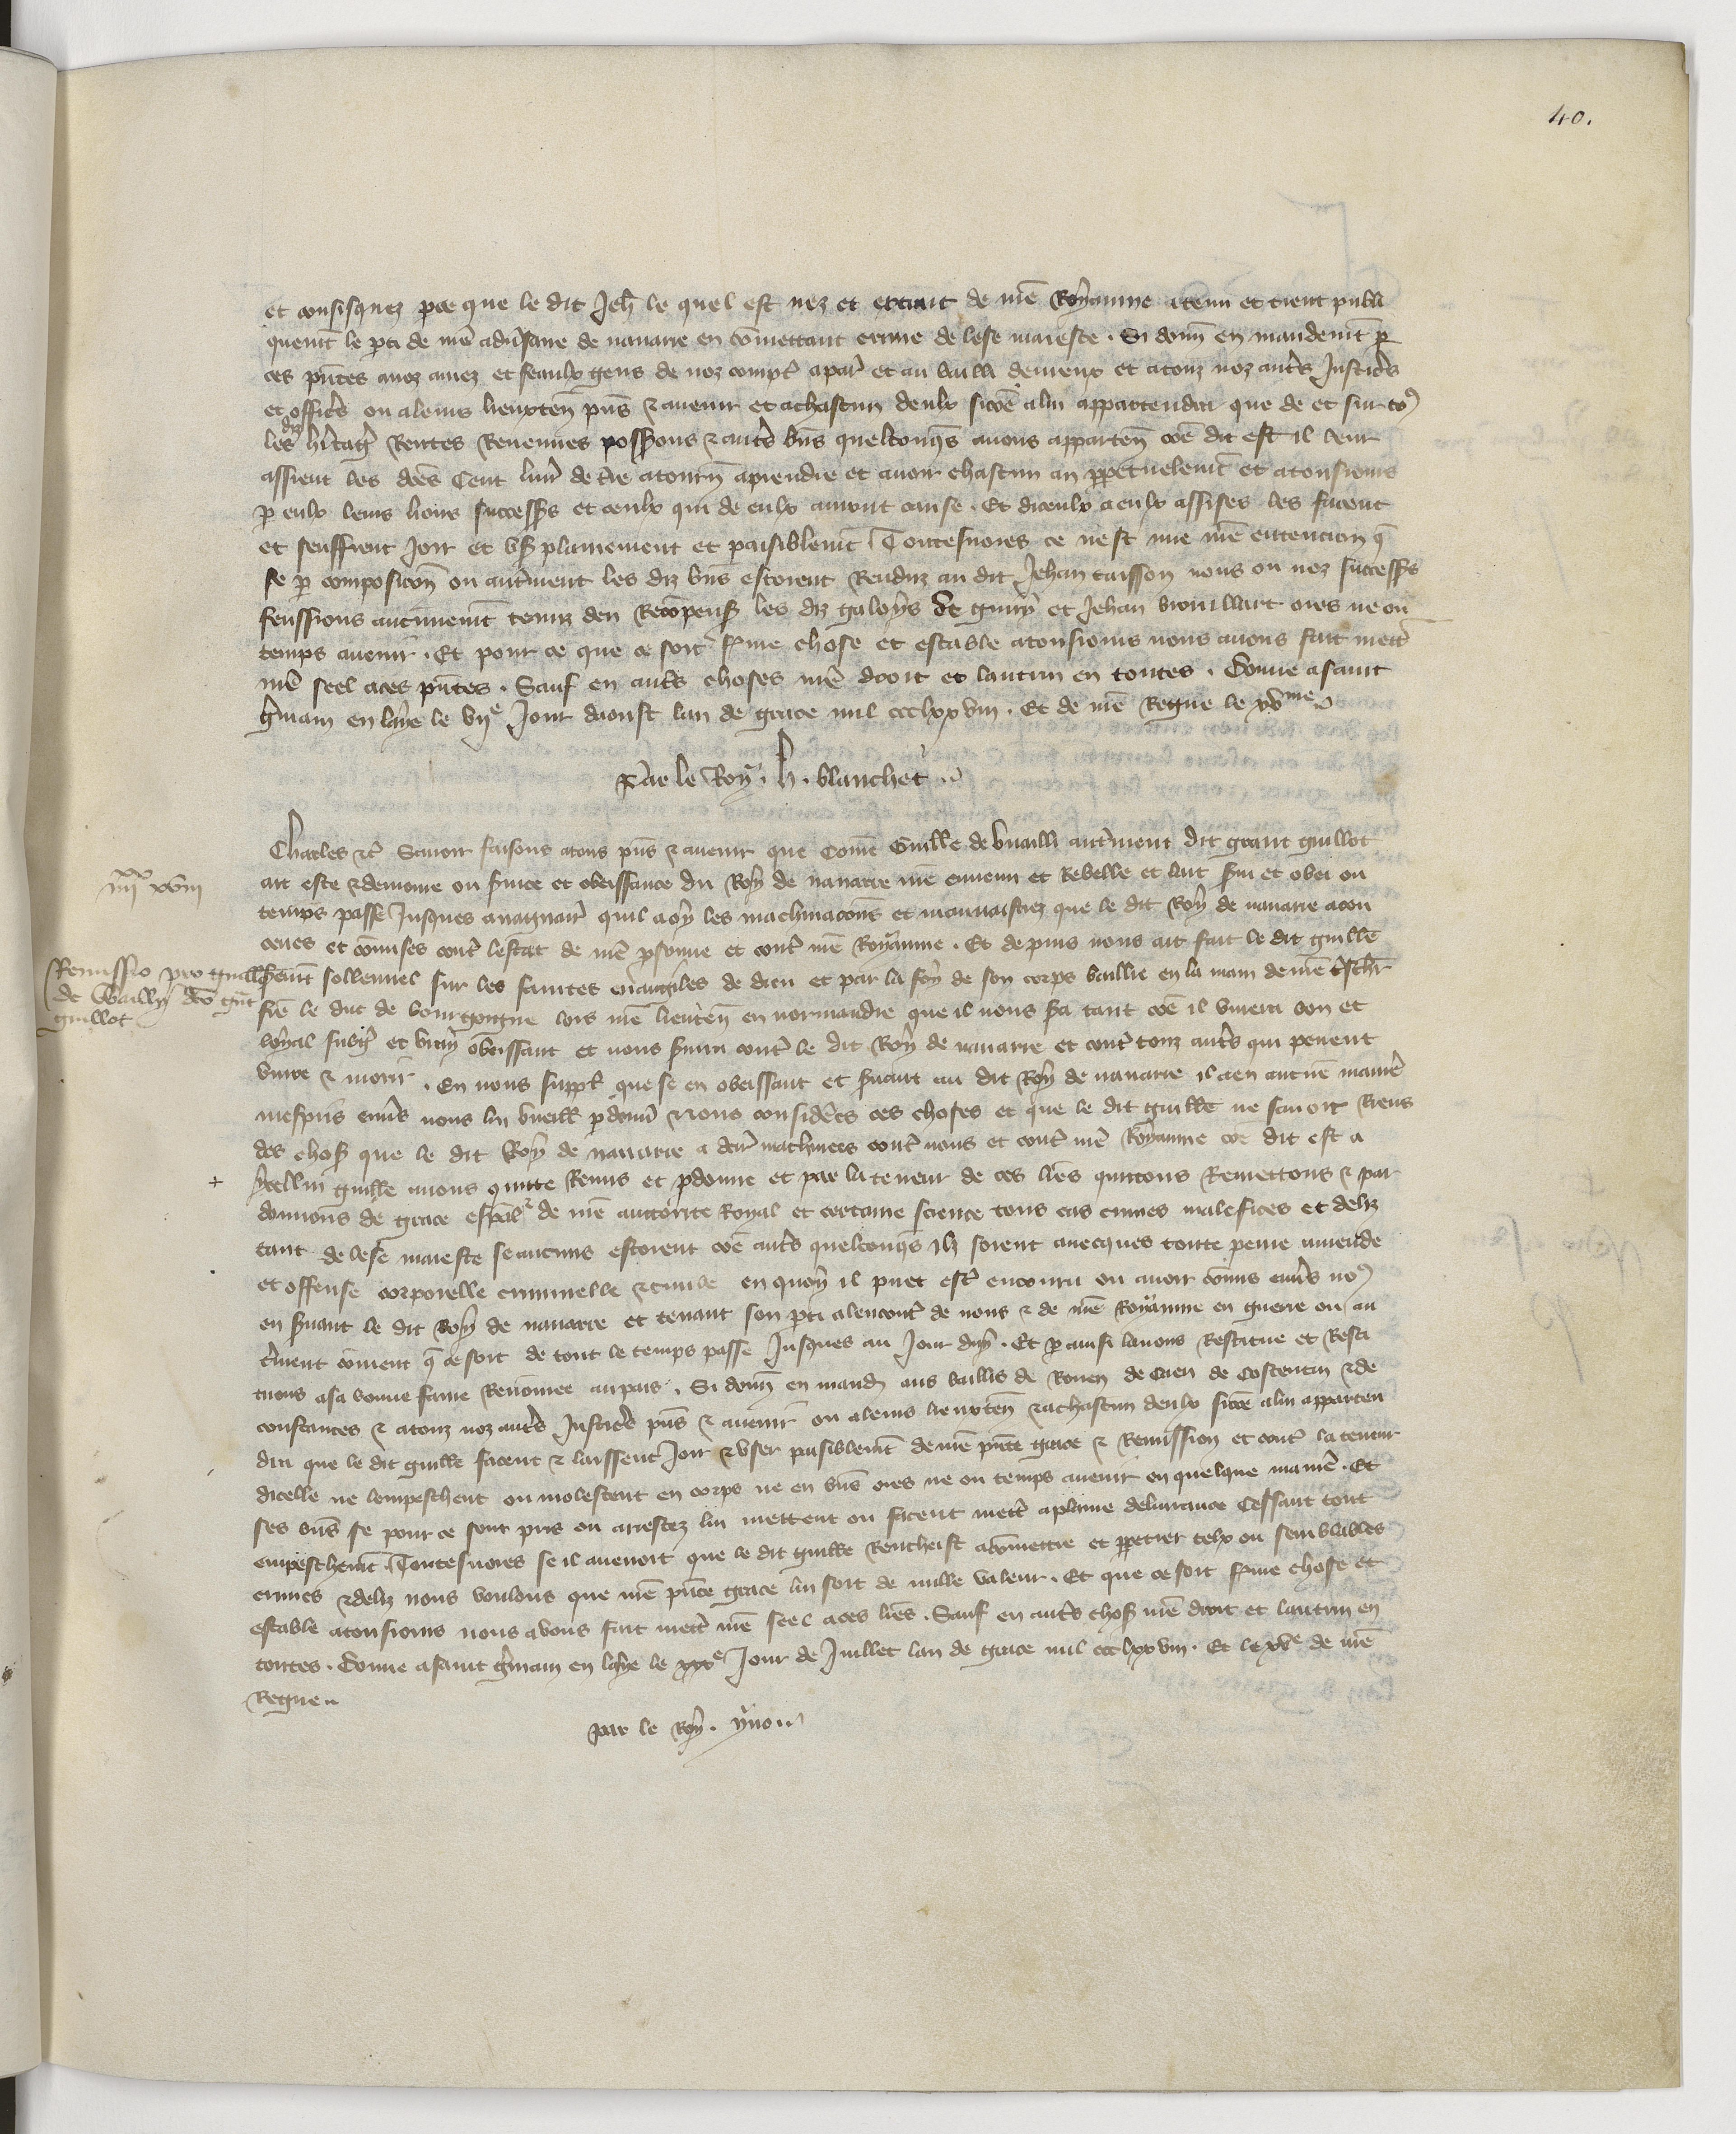 40.
et confisquez pce que le dit Jeh̃ le quel est nez et extrait de nr̃e Royaume a tenu et tient publi
quemt̃ le pti de nr̃e adũsaire de nauarre en cõmettant crime de lese maieste . Si donn̄ en mandemt̃ p
ces pñtes a noz amez et feaulx gens de noz compt̃ a par̃ et au bailli deureux et a touz noz autr̃s Justicr̃s
et officr̃s ou a leurs lieuxten̄ pñs & auenir et a chascun deulx sicõe a lui appartendra que de et sur to9
les diz hr̃itag̃ Rentes Reuenues possessions & autr̃s biñs quelconqs̃ a nous apparten̄ cõe dit est il leur
assieent les dc̃es Cent liur̃ de tr̃e a tourn̄ a prendre et auoir chascun an ppetuelemt̃ et a tousiours
p eulx leurs hoirs success̃s et ceulx qui de eulx auront cause . Et diceulx a eulx assises les facent
et seuffrent Joir et vser̃ plainement et paisiblemt̃ Toutesuoies ce nest mie nr̃e entencion q̃
se p composicõn ou autr̃ment les diz biñs estoient Renduz au dit Jehan taisson nous ou noz success̃s
feussions aucunemt̃ tenuz den Recõpens̃ les diz galoys de guny et Jehan brouillart ores ne ou
temps auenir . Et pour ce que ce soit fr̃me chose et estable a tousiours nous auons fait mettr̃
nr̃e seel a ces pñtes . Sauf en autr̃s choses nr̃e droit et lautrui en toutes . Donne a saint
gr̃main en laye le vije Jour daoust lan de grace mil ccclxxviii . Et de nr̃e Regne le xvme
Par le Roy . h . blanchet
Charles &c̃ Sauoir faisons a tous pñs & auenir que Cõme Guillẽ de vuailli autr̃ment dit grant guillot
ait este & demoure ou sr̃uice et obeissance du Roy de nauarre nr̃e ennemi et Rebelle et lait sr̃ui et obei ou
temps passe Jusques a nagair̃ quil a oy les machinacõns et mauuaistiez que le dit Roy de nauarre a con
ceues et cõmises contr̃ lestat de nr̃e psonne et contr̃ nr̃e Royaume . Et depuis nous ait fait le dit guillẽ
iiiixx xviii
Remissio pro guillo
de Wailly dc̃o grñt
guillot
sermt̃ sollennel sur les saintes euuangiles de dieu et par la foy de son corps baillie en la main de nr̃e tr̃schr̃
frẽ le duc de bourgongne lors nr̃e lieuten̄ en normandie que il nous sr̃a tant cõe il viura bon et
loyal subg̃ et vray obeissant et nous sr̃uira contr̃ le dit Roy de nauarre et contr̃ touz autr̃s qui peuent
viure & morir . En nous suppl̃ que se en obeissant et sr̃uant au dit Roy de nauarre il a en aucũe manir̃
mespris enũs nous lui vueill̃ pdonn̄ & Nous considr̃es ces choses et que le dit guillẽ ne sauoit Riens
des chos̃ que le dit Roy de nauarre a machinees contr̃ nous et contr̃ nr̃e Royaume cõe dit est a
+ ycellui guillẽ auons quitte Remis et pdonne et par la teneur de ces lr̃es quittons Remettons & par
donnons de grace especial̃ de nr̃e auctorite Royal et certaine science tous cas crimes malefices et deliz
tant de lese maieste se aucuns estoient cõe autr̃s quelconqs̃ ilz soient auecques toute peine amende
et offense corporelle criminelle & ciuile en quoy il puet estr̃ encouru ou auoir cõmis enũs no9
en sr̃uant le dit Roy de nauarre et tenant son pti a lencontr̃ de nous & de nr̃e Royaume en guerre ou au
tr̃ment cõment q̃ ce soit de tout le temps passe Jusques au Jour duy . Et p ainsi lauons Restitue et Resti
tuons a sa bonne fame Renõmee au pais . Si donn̄ en mand̃ aus baillis de Rouen de Caen de Costentin & de
constances & a touz noz autr̃s Justicr̃s pñs & auenir ou a leurs lieuxten̄ & a chascun deulx sicõe a lui apparten
dra que le dit guillẽ facent & laissent Joir & vser paisiblemt̃ de nr̃e pñte grace & Remission et contr̃ la teneur
dicelle ne lempeschent ou molestent en corps ne en biñs ores ne ou temps auenir en quelque manir̃ . Et
ses biñs se pour ce sont pris ou arrestez lui mettent ou facent mettr̃ a plaine deliurance Cessant tout
empeschemt̃ Toutesuoies se il auenoit que le dit guillẽ Rencheist a cõmettre et ppetrer telx ou semblables
crimes & deliz nous voulons que nr̃e pñte grace lui soit de nulle valeur . Et que ce soit fr̃me chose et
estable a tousiours nous auons fait mettr̃ nr̃e seel a ces lr̃es . Sauf en autr̃s chos̃ nr̃e droit et lautrui en
toutes . Donne a saint gr̃main en laye le xxxe Jour de Juillet lan de grace mil ccclxxviii . Et le xve de nr̃e
Regne
par le Roy . yuo